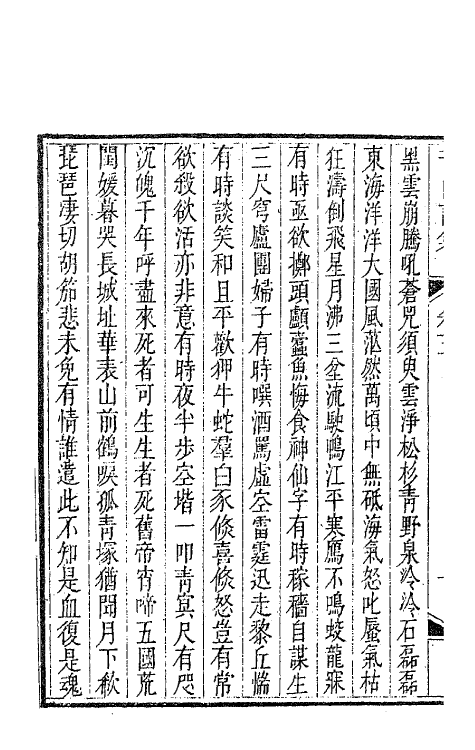 黑雲崩騰吼蒼兕須臾雲淨松杉青野泉泠泠石磊磊
東海洋洋大國風泓然萬頃中無砥海氣怒叱蜃氣枯
狂濤倒飛星月沸三岔流駛鴨江平寒鴈不鳴蛟龍寐
有時亟欲擲頭顱蠹魚悔食神仙字有時稼穡自謀生
三尺穹廬團婦子有時噀酒罵虛空雷霆迅走黎丘惴
有時談笑和且平歡狎牛蛇羣白豕倏喜倏怒豈有常
欲殺欲活亦非意有時夜半步空堦一叩青冥尺有咫
沉魄千年呼盡來死者可生生者死舊帝宵啼五國荒
閨媛暮哭長城址華表山前鶴唳孤青塚猶聞月下秋
琵琶凄切胡笳悲未免有情誰遣此不知是血復是魂